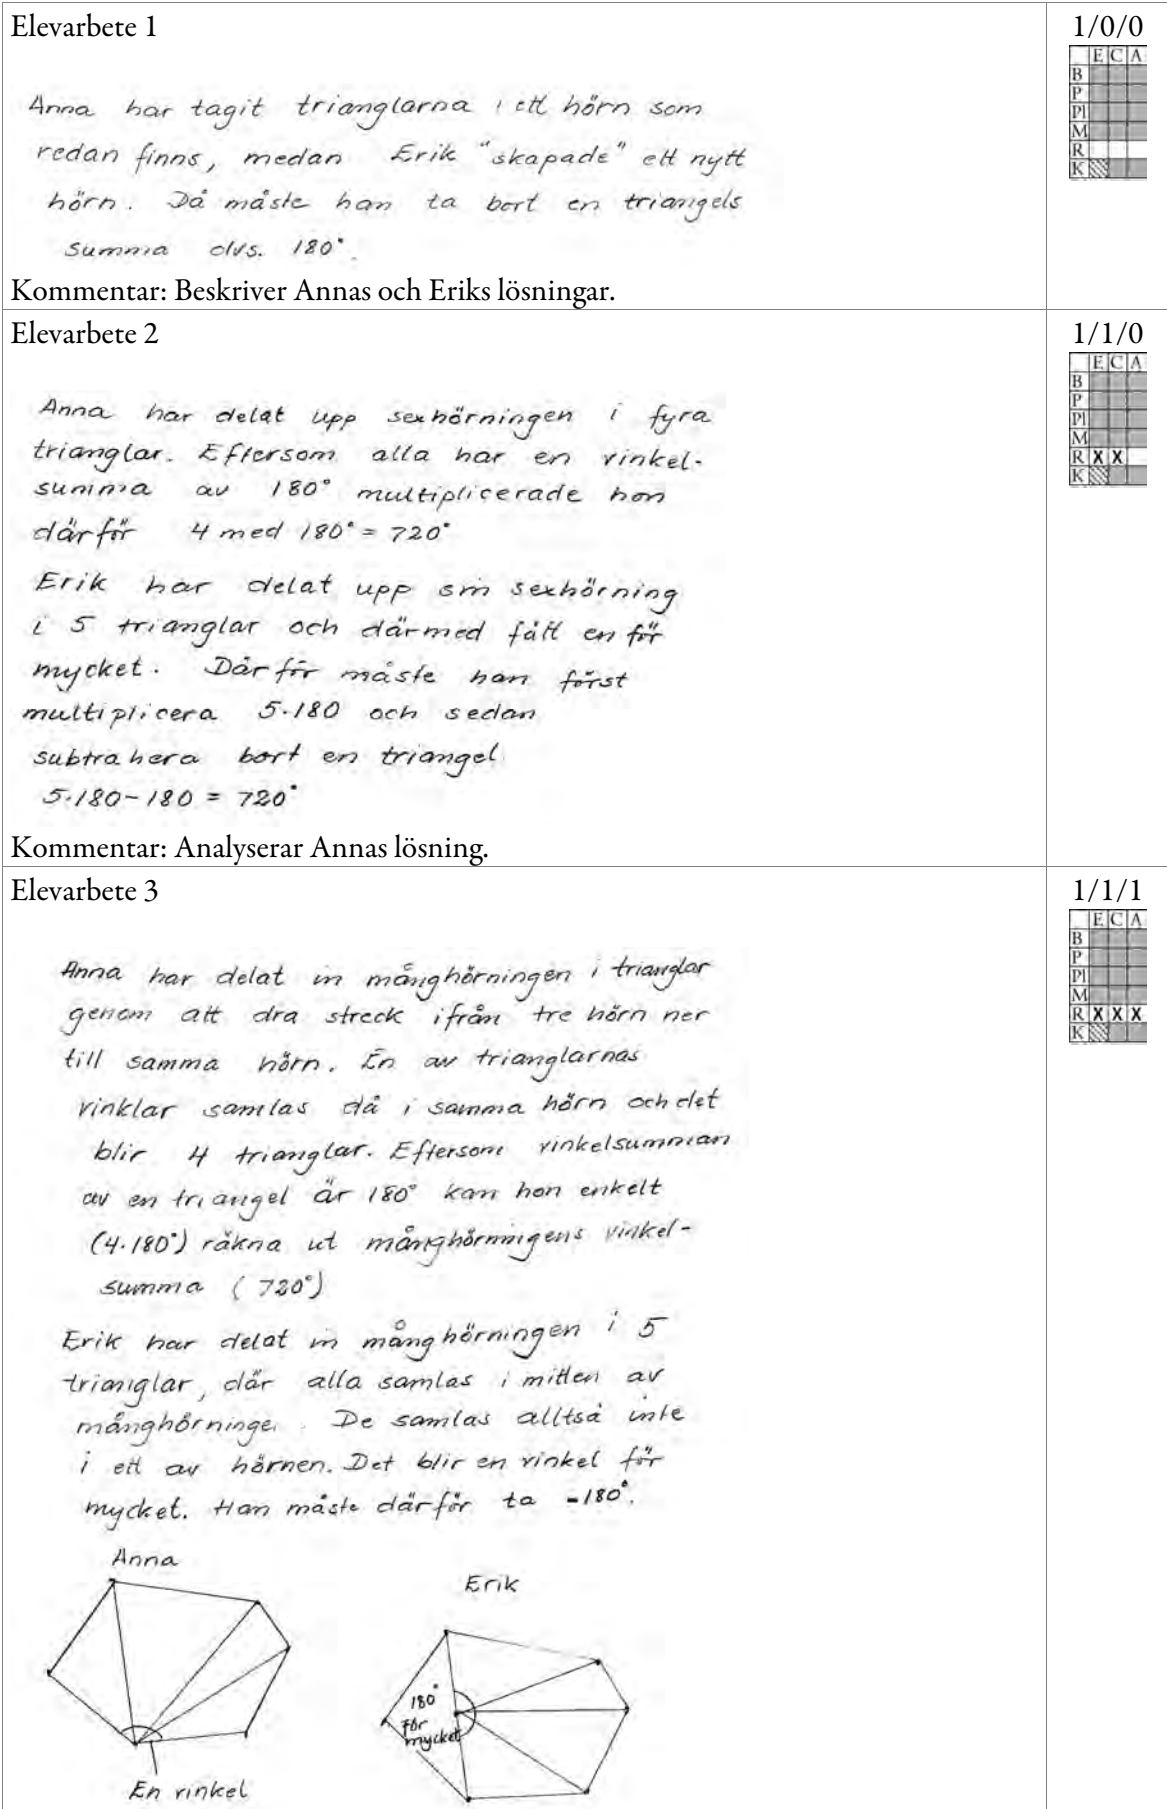 Elevarbete 1
1/0/0
E C A
B
P
Pl
M
R
K
Anna har tagit trianglarna i ett hörn som
redan finns, medan Erik "skapade" ett nytt
hörn. Då måste han ta bort en triangels
summa dvs. 180°.
Kommentar: Beskriver Annas och Eriks lösningar.
Elevarbete 2
1/1/0
E C A
B
P
Pl
M
R X X
K
Anna har delat upp sexhörningen i fyra
trianglar. Eftersom alla har en vinkel-
summa av 180° multiplicerade hon
därför 4 med 180° = 720°
Erik har delat upp sin sexhörning
i 5 trianglar och därmed fått en för
mycket. Därför måste han först
multiplicera 5·180 och sedan
subtrahera bort en triangel
5·180-180 = 720°
Kommentar: Analyserar Annas lösning.
Elevarbete 3
1/1/1
E C A
B
P
Pl
M
R X X X
K
Anna har delat in månghörningen i trianglar
genom att dra streck ifrån tre hörn ner
till samma hörn. En av trianglarnas
vinklar samlas då i samma hörn och det
blir 4 trianglar. Eftersom vinkelsumman
av en triangel är 180° kan hon enkelt
(4·180°) räkna ut månghörningens vinkel-
summa (720°)
Erik har delat in månghörningen i 5
trianglar, där alla samlas i mitten av
månghörninge. De samlas alltså inte
i ett av hörnen. Det blir en vinkel för
mycket. Han måste därför ta -180°.
Anna
Erik
180°
för
mycket
En vinkel